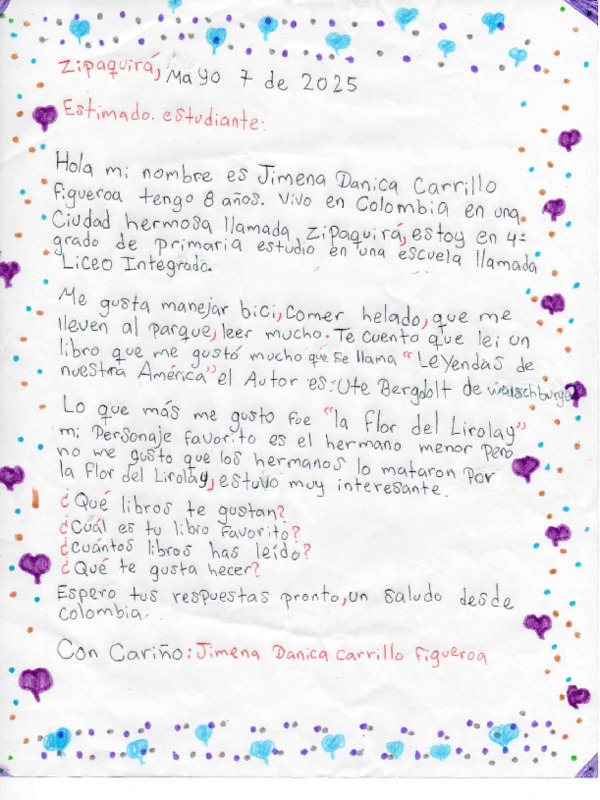 Zipaquirá, Mayo 7 de 2025
Estimado. estudiante:
Hola mi nombre es Jimena Danica Carrillo
Figueroa tengo 8 años. vivo en Colombia en una
Ciudad hermosa llamada Zipaquirá, estoy en 4º
grado de primaria estudio en una escuela llamada
Liceo Integrado.
Me gusta manejar bici, comer helado, que me
lleven al parque, leer mucho. Te cuento que lei un
libro que me gustó mucho que se llama "Leyendas de
nuestra América" el Autor es: Ute Bergdolt de walschburger
Lo que más me gusto fue "la Flor del Lirolay"
mi Personaje favorito es el hermano menor Pero
no me gusto que los hermanos lo mataron Por
la Flor del Lirolay, estuvo muy interesante.
¿Qué libros te gustan?
¿Cuál es tu libro Favorito?
¿cuántos libros has leído?
¿Qué te gusta hecer?
Espero tus respuestas pronto, un saludo desde
Colombia.
Con Cariño: Jimena Danica carrillo figueroa